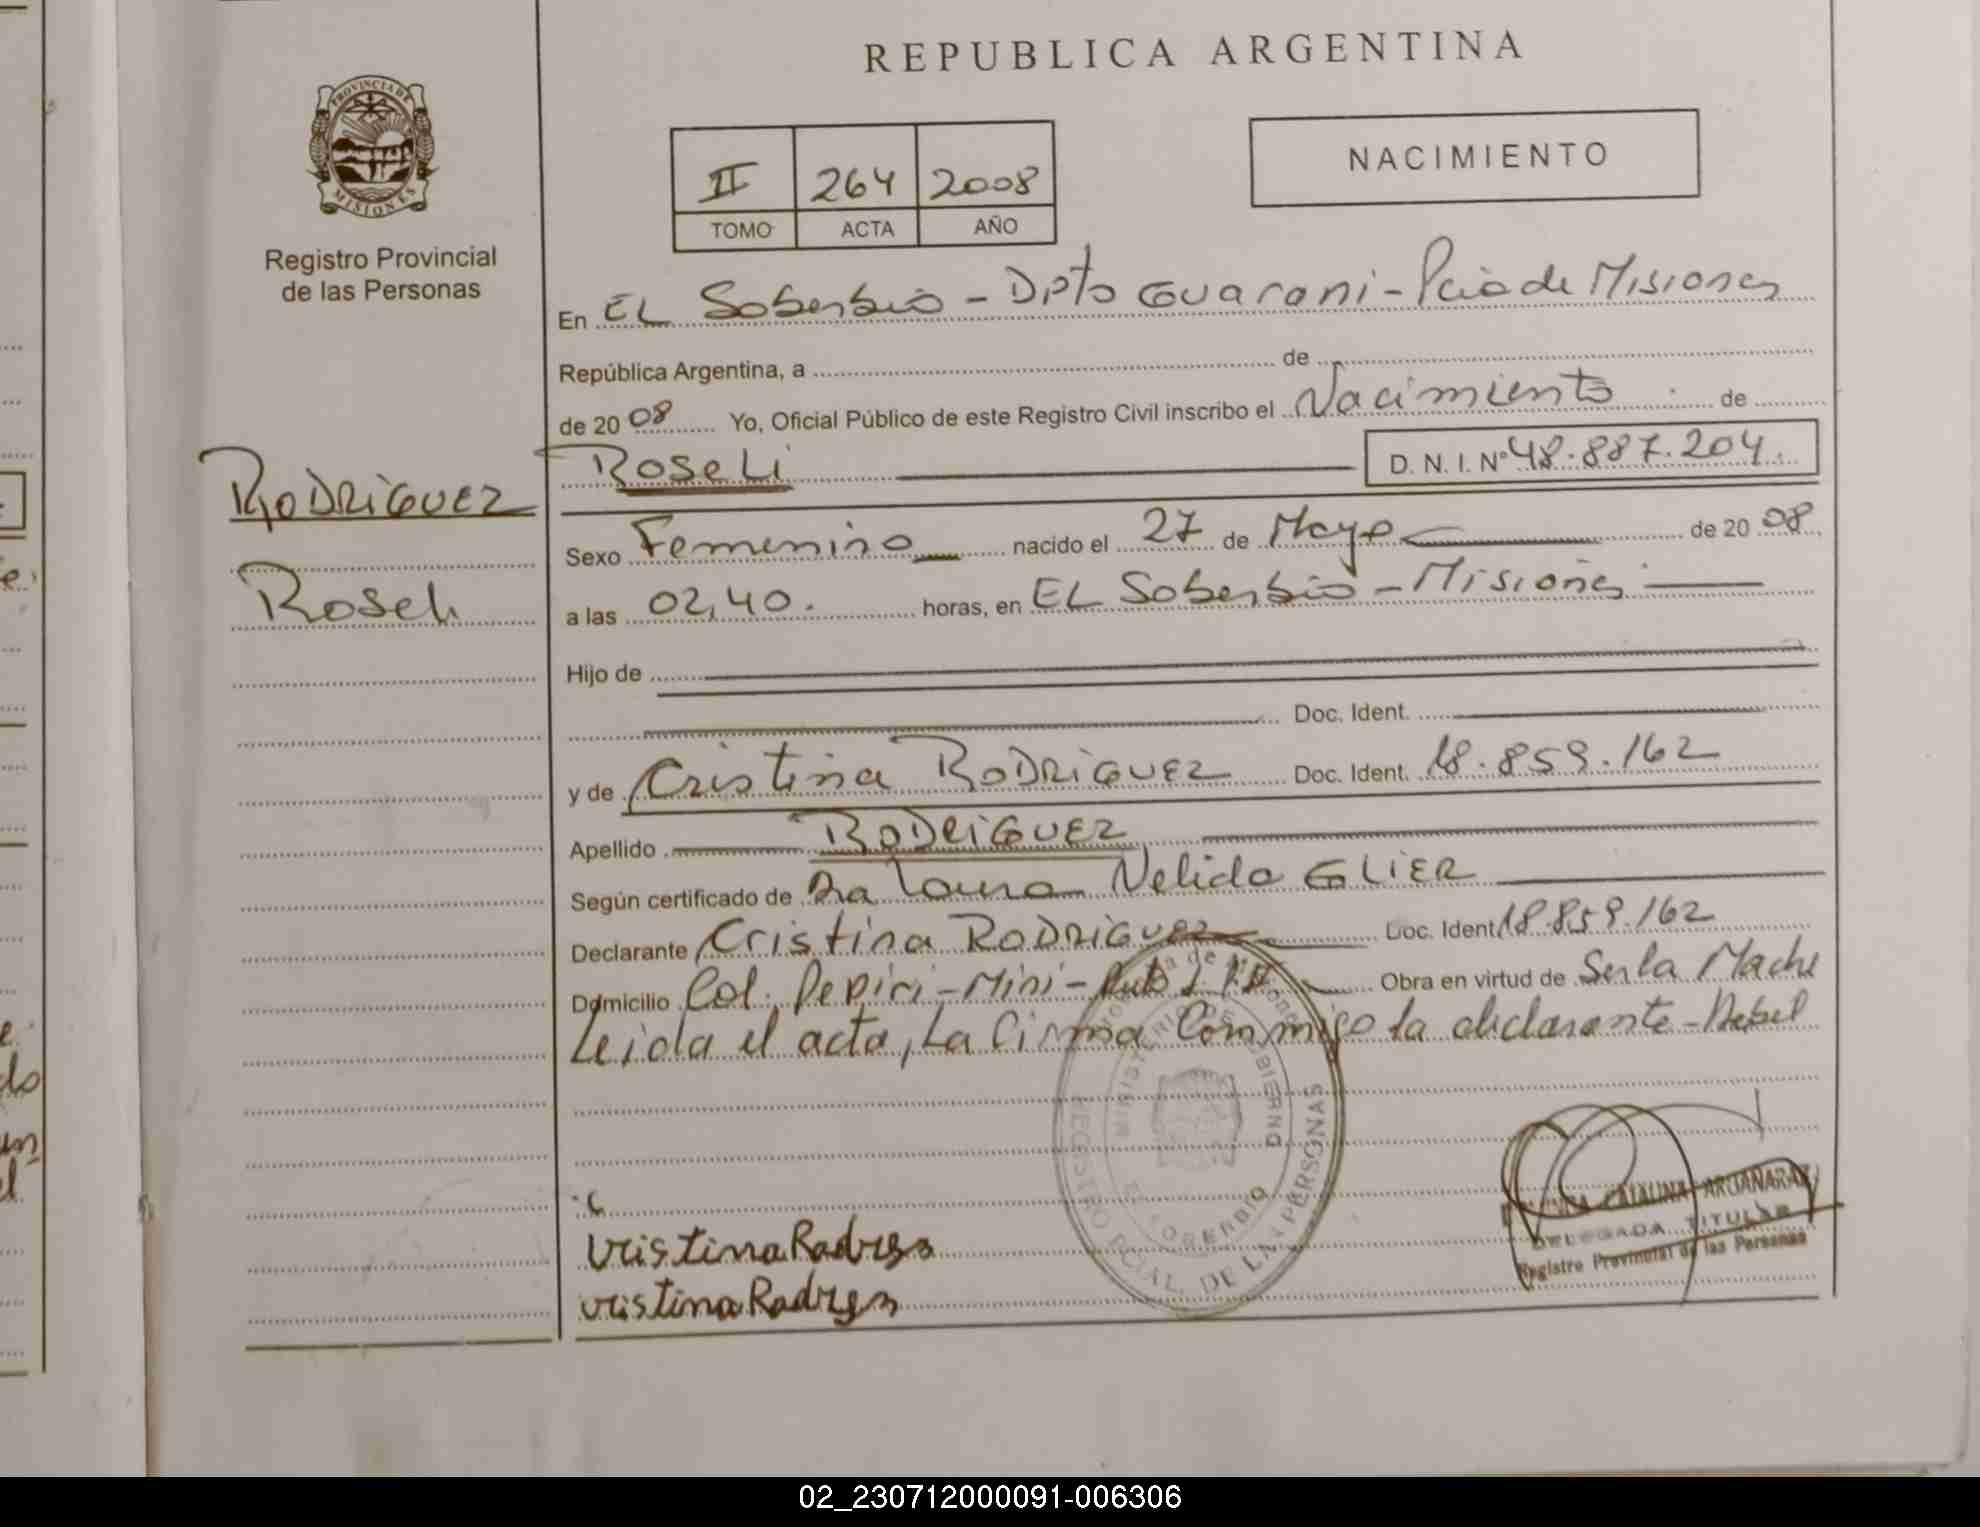 REPUBLICA ARGENTINA
PROVINCIA DE
MISIONES
Registro Provincial
de las Personas
II 264 2008
TOMO ACTA AÑO
NACIMIENTO
En EL Soberbio - Dpto Guarani - Pcia de Misiones
República Argentina, a de
de 2008 Yo, Oficial Público de este Registro Civil inscribo el Nacimiento de
RODRIGUEZ
Roseli
Roseli D. N. I. Nº 48.887.204
Sexo Femenino nacido el 27 de Mayo de 2008
a las 02,40. horas, en EL Soberbio - Misiones
Hijo de
Doc. Ident.
y de Cristina RODRIGUEZ Doc. Ident. 18.859.162
Apellido RODRIGUEZ
Según certificado de Dra Laura Nelida GLIER
Declarante Cristina RODRIGUEZ Doc. Ident. 18.859.162
Domicilio Col. Pepiri-Mini- Obra en virtud de Ser la Madre
Leida el acta, La firma Conmigo la declarante-
MINISTERIO DE GOBIERNO
EL SOBERBIO
REGISTRO PCIAL. DE LAS PERSONAS
CATALINA ARGAÑARAZ
DELEGADA TITULAR
Registro Provincial de las Personas
02_230712000091-006306